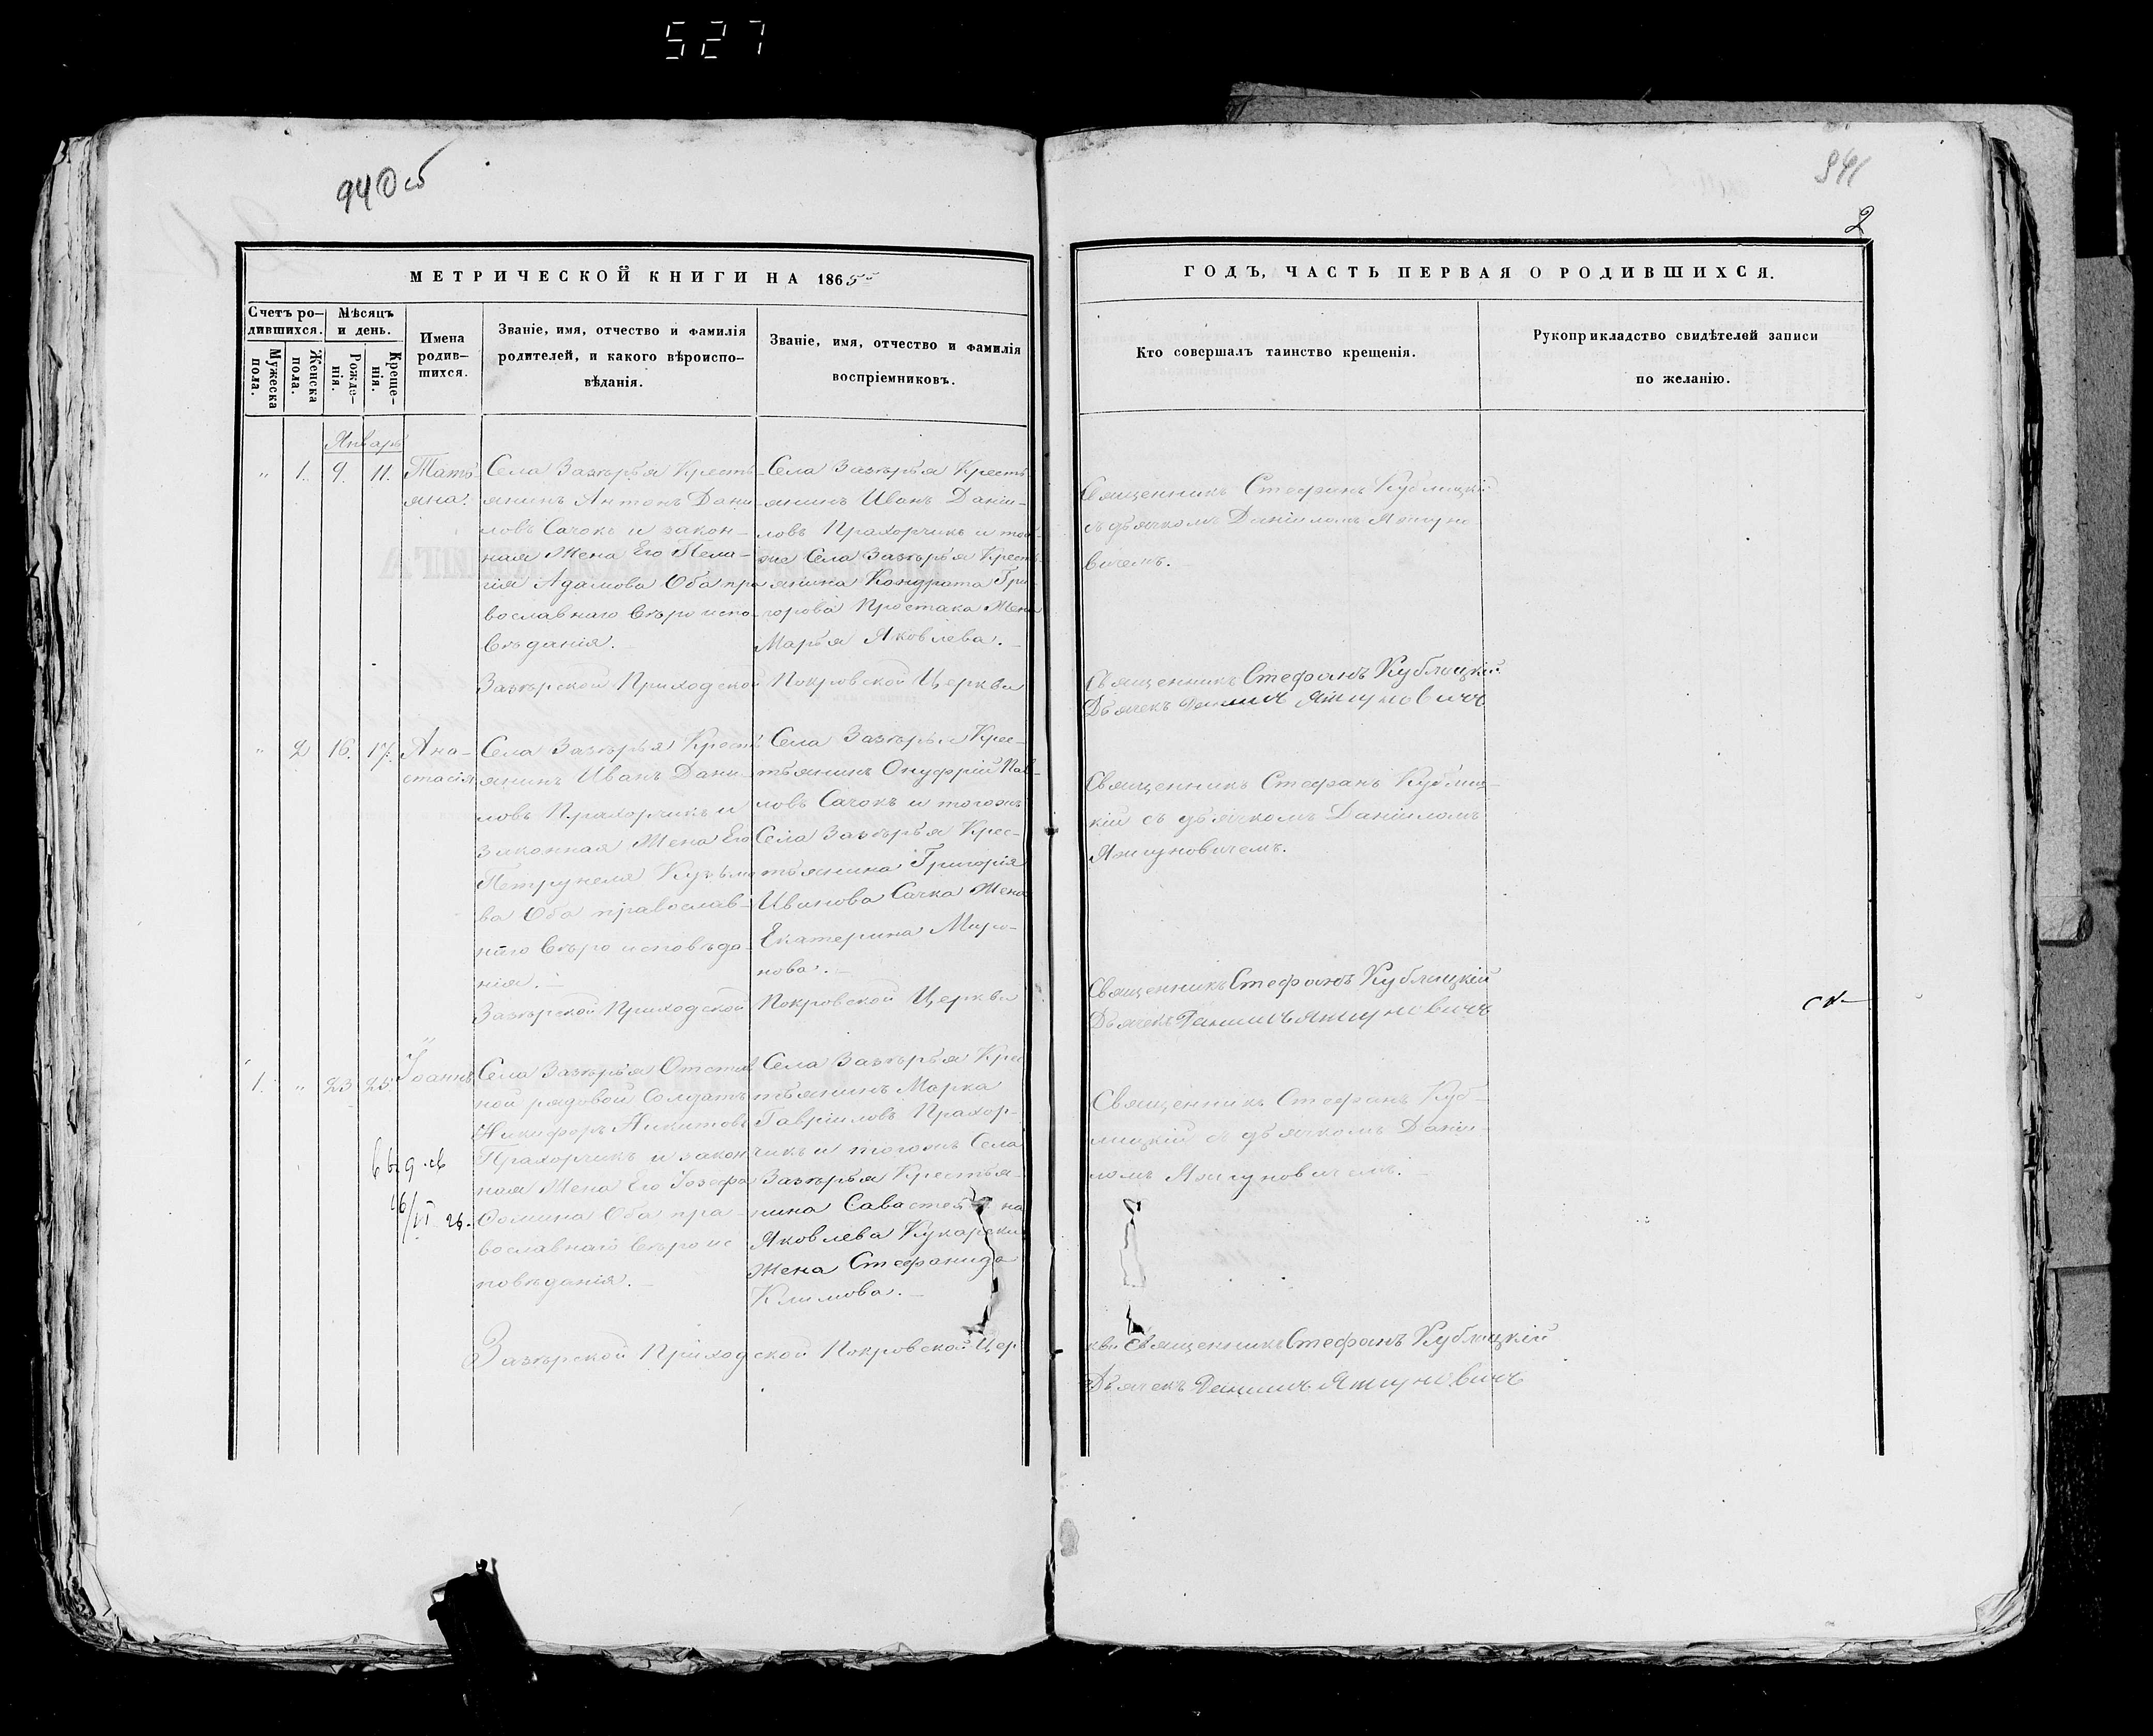 527
940 об
941
2
МЕТРИЧЕСКОЙ КНИГИ НА 1865
Счетъ ро-
дившихся.
Мужеска
пола.
Женска
пола.
Мѣсяцъ
и день.
Рожде-
нія.
Креще-
нія.
Имена
родив-
шихся.
Званіе, имя, отчество и фамилія
родителей, и какого вѣроиспо-
вѣданія.
Званіе, имя, отчество и фамилія
воспріемниковъ.
ГОДЪ, ЧАСТЬ ПЕРВАЯ О РОДИВШИХСЯ.
Кто совершалъ таинство крещенія.
Рукоприкладство свидѣтелей записи
по желанію.
Январь
" 1. 9. 11.
Тать-
яна.
Села Завѣрья Кресть-
янинъ Антонъ Дани-
ловъ Сачокъ и закон-
ная Жена Его Пела-
гія Адамова Оба пра
вославнаго вѣроиспо-
вѣданія.
Села Завѣрья Кресть
янинъ Иванъ Даніи-
ловъ Прахорчикъ и той-
же Села Завѣрья Кресть
янина Кондрата Гри-
горова Простака Жена
Марья Яковлева.
Священникъ Стефанъ Кублицкій
съ дьячкомъ Даніиломъ Яжгуно
вичемъ.
Завѣрской Приходской Покровской Церкви
Священникъ Стефанъ Кублицкій
Дьячекъ Данилъ Яжгуновичъ
" 2 16. 17.
Ана-
стасія
Села Завѣрья Кресть
янинъ Иванъ Дани-
ловъ Прахорчикъ и
законная Жена Его
Петрунеля Кузьмо
ва Оба православ-
наго вѣроисповѣда-
нія.
Села Завѣрья Крес-
тьянинъ Онуфрій Пав-
ловъ Сачокъ и тогожъ
Села Завѣрья Крес-
тьянина Григорія
Иванова Сачка Жена
Екатерина Миро-
нова.
Священникъ Стефанъ Кублиц-
кій съ дьячкомъ Даніиломъ
Яжгуновичемъ.
Завѣрской Приходской Покровской Церкви
Священникъ Стефанъ Кублицкій
Дьячекъ Данилъ Яжгуновичъ
1. " 23 25
Іоаннъ
Села Завѣрья Отстав
ной рядовой Солдатъ
Никифоръ Никитовъ
Прахорчикъ и закон
ная Жена Его Іозефа
Сомина Оба пра-
вославнаго вѣроис
повѣданія.
Села Завѣрья Крес
тьянинъ Марка
Гавріиловъ Прахор-
чикъ и тогожъ Села
Завѣрья Крестья-
нина
Яковлева
Жена Стефанида
Климова.
Священникъ Стефанъ Куб-
лицкій съ дьячкомъ Даніи-
ломъ Яжгуновичемъ.
Завѣрской Приходской Покровской Цер
кви Священникъ Стефанъ Кублицкій
Дьячекъ Данилъ Яжгуновичъ